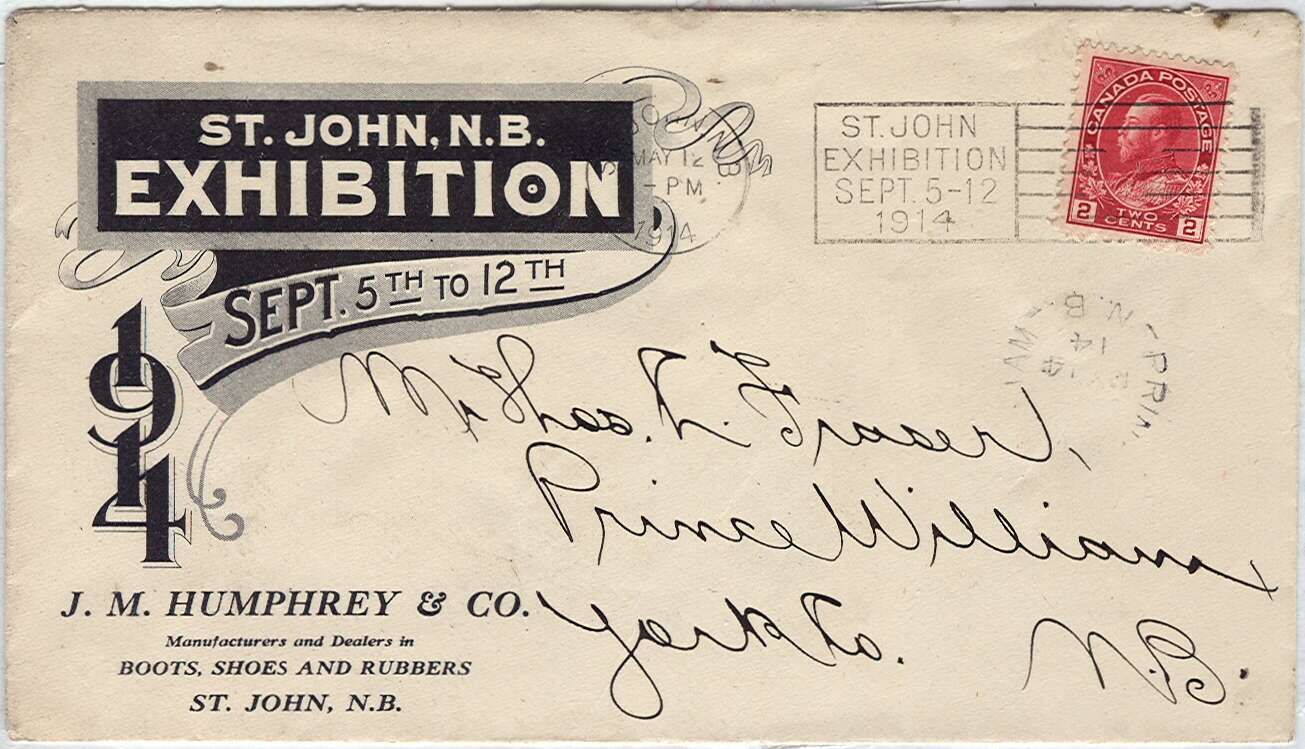 ST. JOHN, N.B.
EXHIBITION
SEPT. 5TH TO 12TH
1914
J. M. HUMPHREY & CO.
Manufacturers and Dealers in
BOOTS, SHOES AND RUBBERS
ST. JOHN, N.B.
MAY 12
- PM
1914
ST. JOHN
EXHIBITION
SEPT. 5-12
1914
CANADA POSTAGE
2 TWO CENTS 2
PRIN
AM
14
14
N.B.
Mr Thos. L. Fraser,
Prince William
York Co. N.B.